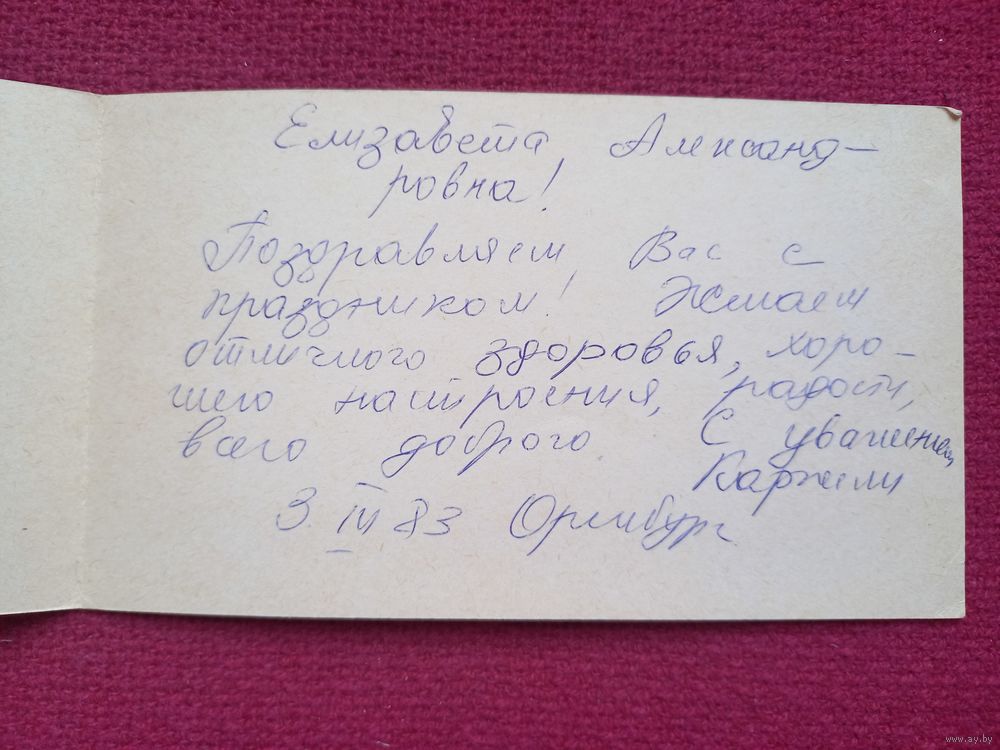 Елизавета Александ-
ровна!
Поздравляем Вас с
праздником! Желаем
отличного здоровья, хоро-
шего настроения, радости,
всего доброго. С уважением
3 III 83 Оренбург
www.ay.by